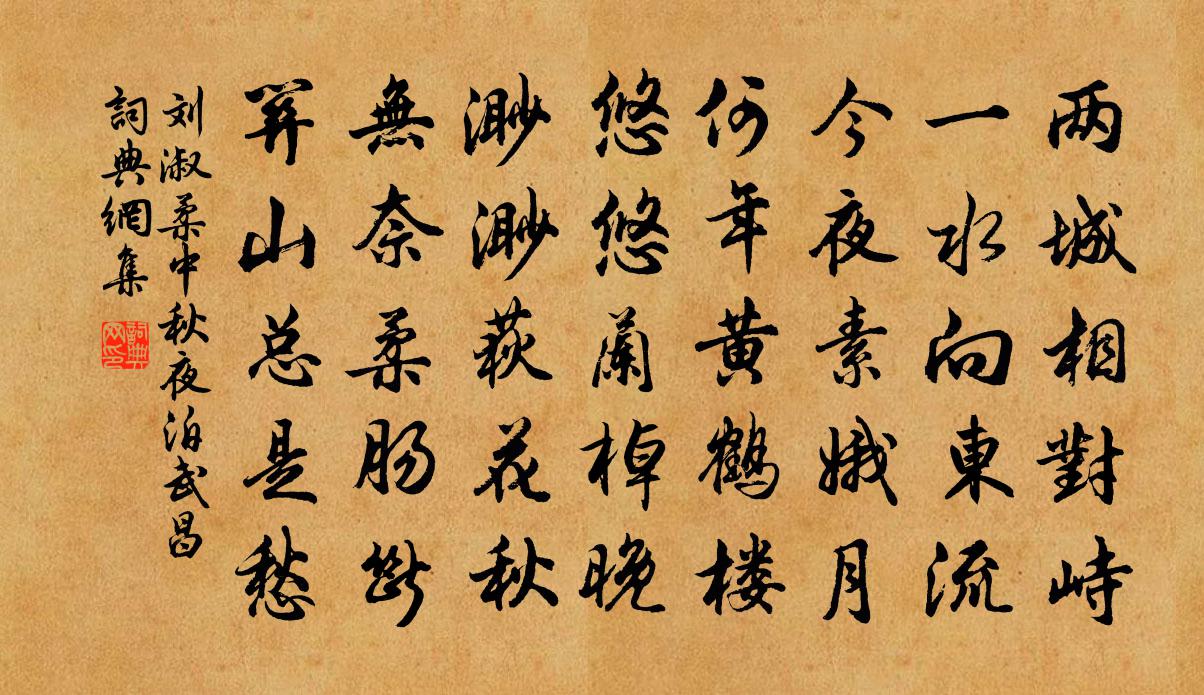 两城相對峙
一水向東流
今夜素娥月
何年黄鶴楼
悠悠蘭棹晚
渺渺荻花秋
無奈柔肠斷
關山总是愁
刘淑柔中秋夜泊武昌
詞典網集
詞典网印